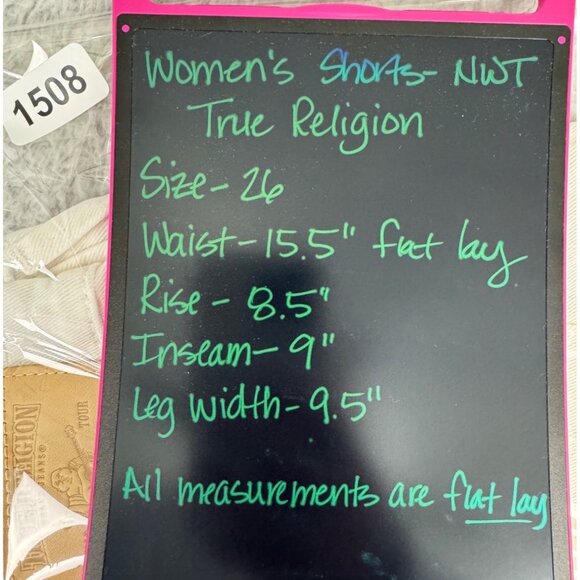 1508
Women's Shorts- NWT
True Religion
Size- 26
Waist- 15.5" flat lay
Rise - 8.5"
Inseam- 9"
Leg width- 9.5"
All measurements are flat lay
RELIGION
TOUR